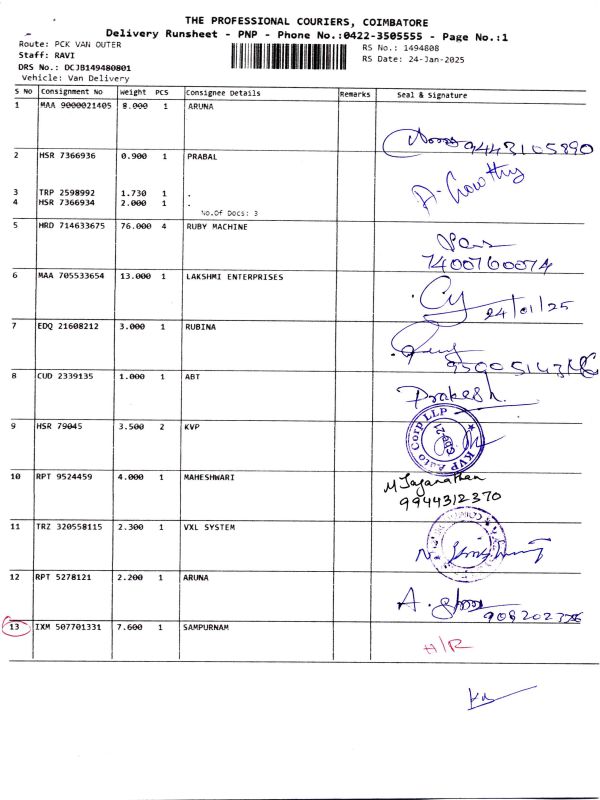 THE PROFESSIONAL COURIERS, COIMBATORE
Delivery Runsheet - PNP - Phone No.:0422-3505555 - Page No.:1
Route: PCK VAN OUTER
RS No.: 1494808
Staff: RAVI
RS Date: 24-Jan-2025
DRS No.: DCJB149480801
Vehicle: Van Delivery
S No Consignment No Weight PCS Consignee Details Remarks Seal & Signature
1 MAA 9000021405 8.000 1 ARUNA
9443105890
2 HSR 7366936 0.900 1 PRABAL
A. Gowthy
3 TRP 2598992 1.730 1 .
4 HSR 7366934 2.000 1 .
No.Of Docs: 3
5 HRD 714633675 76.000 4 RUBY MACHINE
7400760074
6 MAA 705533654 13.000 1 LAKSHMI ENTERPRISES
24/01/25
7 EDQ 21608212 3.000 1 RUBINA
8 CUD 2339135 1.000 1 ABT
Prakesh.
9 HSR 79045 3.500 2 KVP
KVP Auto Corp LLP
10 RPT 9524459 4.000 1 MAHESHWARI
M Jaganathan
9944312370
11 TRZ 320558115 2.300 1 VXL SYSTEM
12 RPT 5278121 2.200 1 ARUNA
13 IXM 507701331 7.600 1 SAMPURNAM
H/R